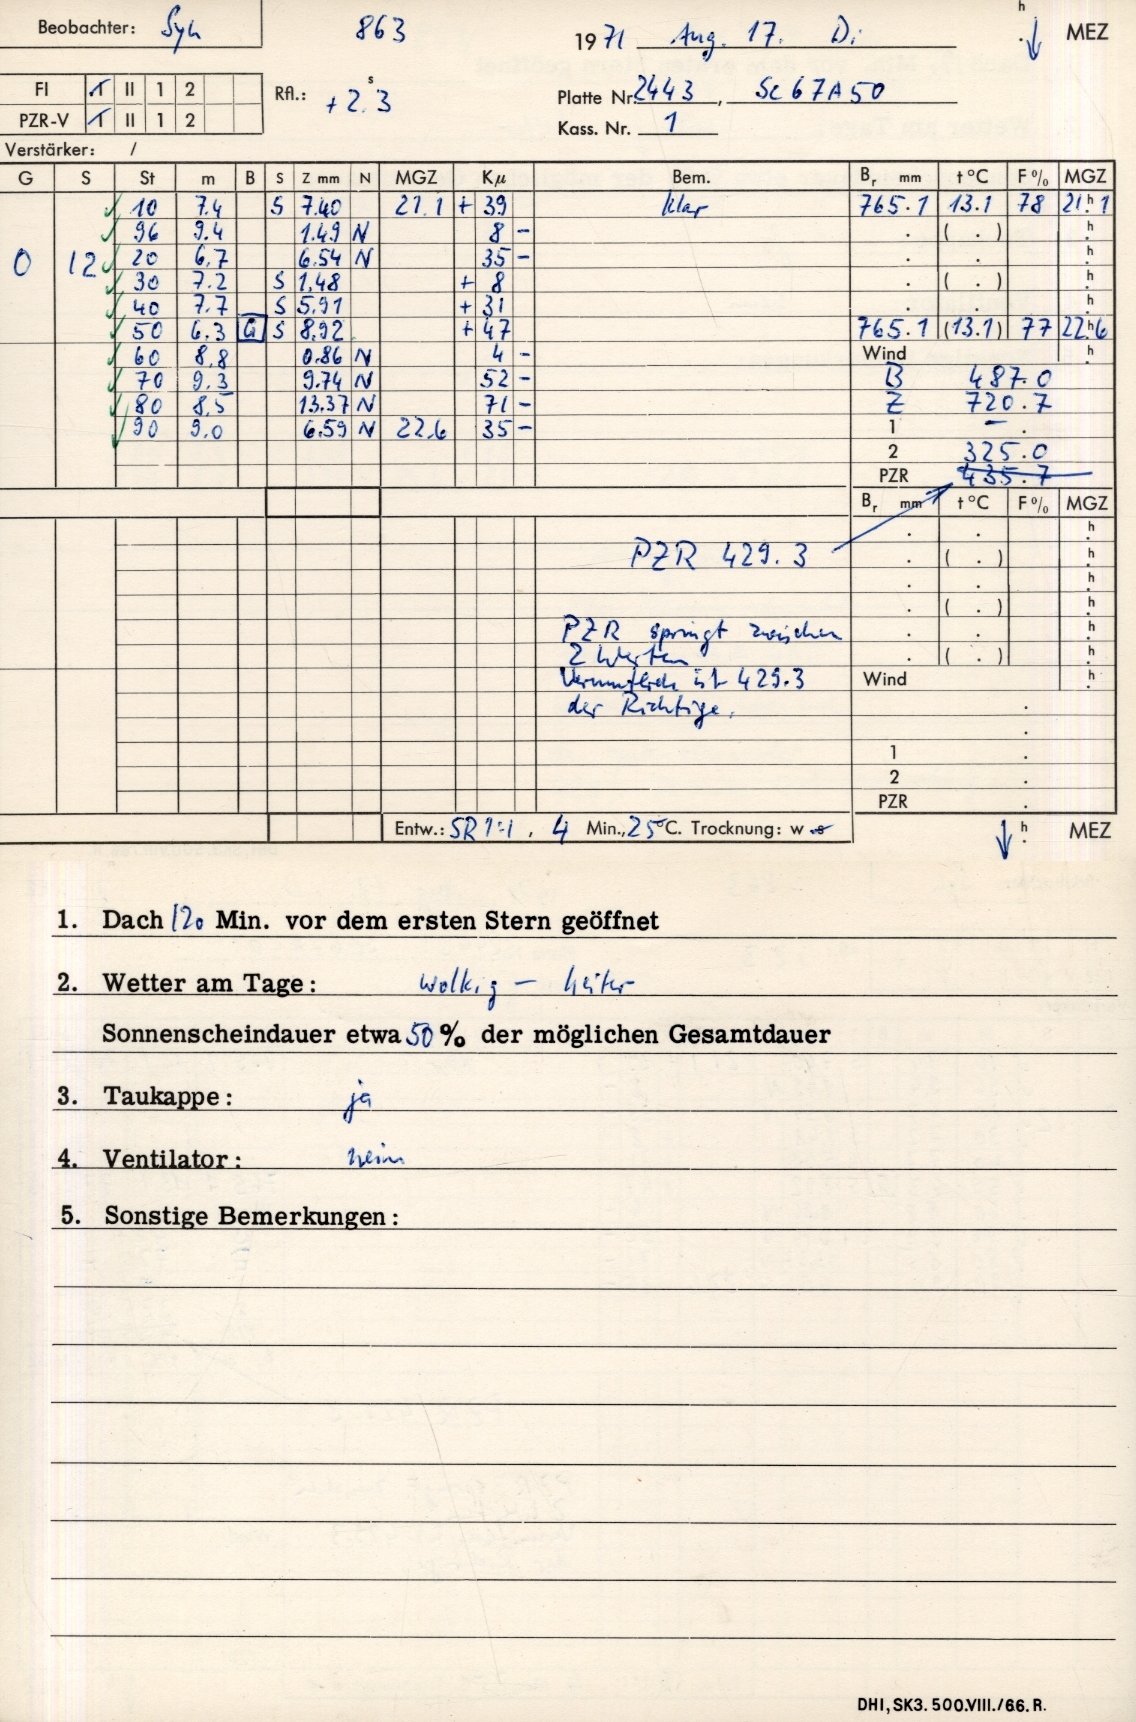 Beobachter: Syh 863 1971 Aug. 17. Di h . MEZ
FI I II 1 2 Rfl.: +2.ˢ3 Platte Nr. 2443, Sc67A50
PZR-V I II 1 2 Kass. Nr. 1
Verstärker: /
G S St m B S Z mm N MGZ Kμ Bem. Br mm t °C F % MGZ
10 7.4 S 7.40 21.1 + 39 klar 765.1 13.1 78 21.h1
96 9.4 1.49 N 8 – . ( . ) h
0 12 20 6.7 6.54 N 35 – . . h
30 7.2 S 1.48 + 8 . ( . ) h
40 7.7 S 5.91 + 31 . . h
50 6.3 G S 8.92 + 47 765.1 (13.1) 77 22.h6
60 8.8 0.86 N 4 – Wind h
70 9.3 9.74 N 52 – B 487.0
80 8.5 13.37 N 71 – Z 720.7
90 9.0 6.59 N 22.6 35 – 1 – .
2 325.0
PZR 435.7
Br mm t °C F % MGZ
. . h
PZR 429.3 . ( . ) h
. . h
. ( . ) h
PZR springt zwischen . . h
2 Werten . ( . ) h
Vermutlich ist 429.3 Wind h
der Richtige. .
.
1 .
2 .
PZR .
Entw.: SR 1:1, 4 Min., 25°C. Trocknung: w s h . MEZ
1. Dach 120 Min. vor dem ersten Stern geöffnet
2. Wetter am Tage: wolkig – heiter
Sonnenscheindauer etwa 50 % der möglichen Gesamtdauer
3. Taukappe: ja
4. Ventilator: nein
5. Sonstige Bemerkungen:
DHI, SK3. 500.VIII./66. R.